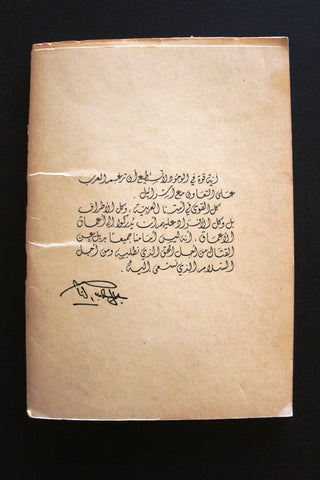 أية قوة في الوجود لا تستطيع أن ترغم العرب
على التعاون مع اسرائيل .
كل القوى في أمتنا العربية ، وكل الأطراف
بل وكل الأفراد عليهم أن يدركوا الى أعماق
الأعماق ، أنه ليس أمامنا جميعا بديل عن
القتال من أجل الحق الذي نطلبه ومن أجل
السلام الذي نسعى اليه .